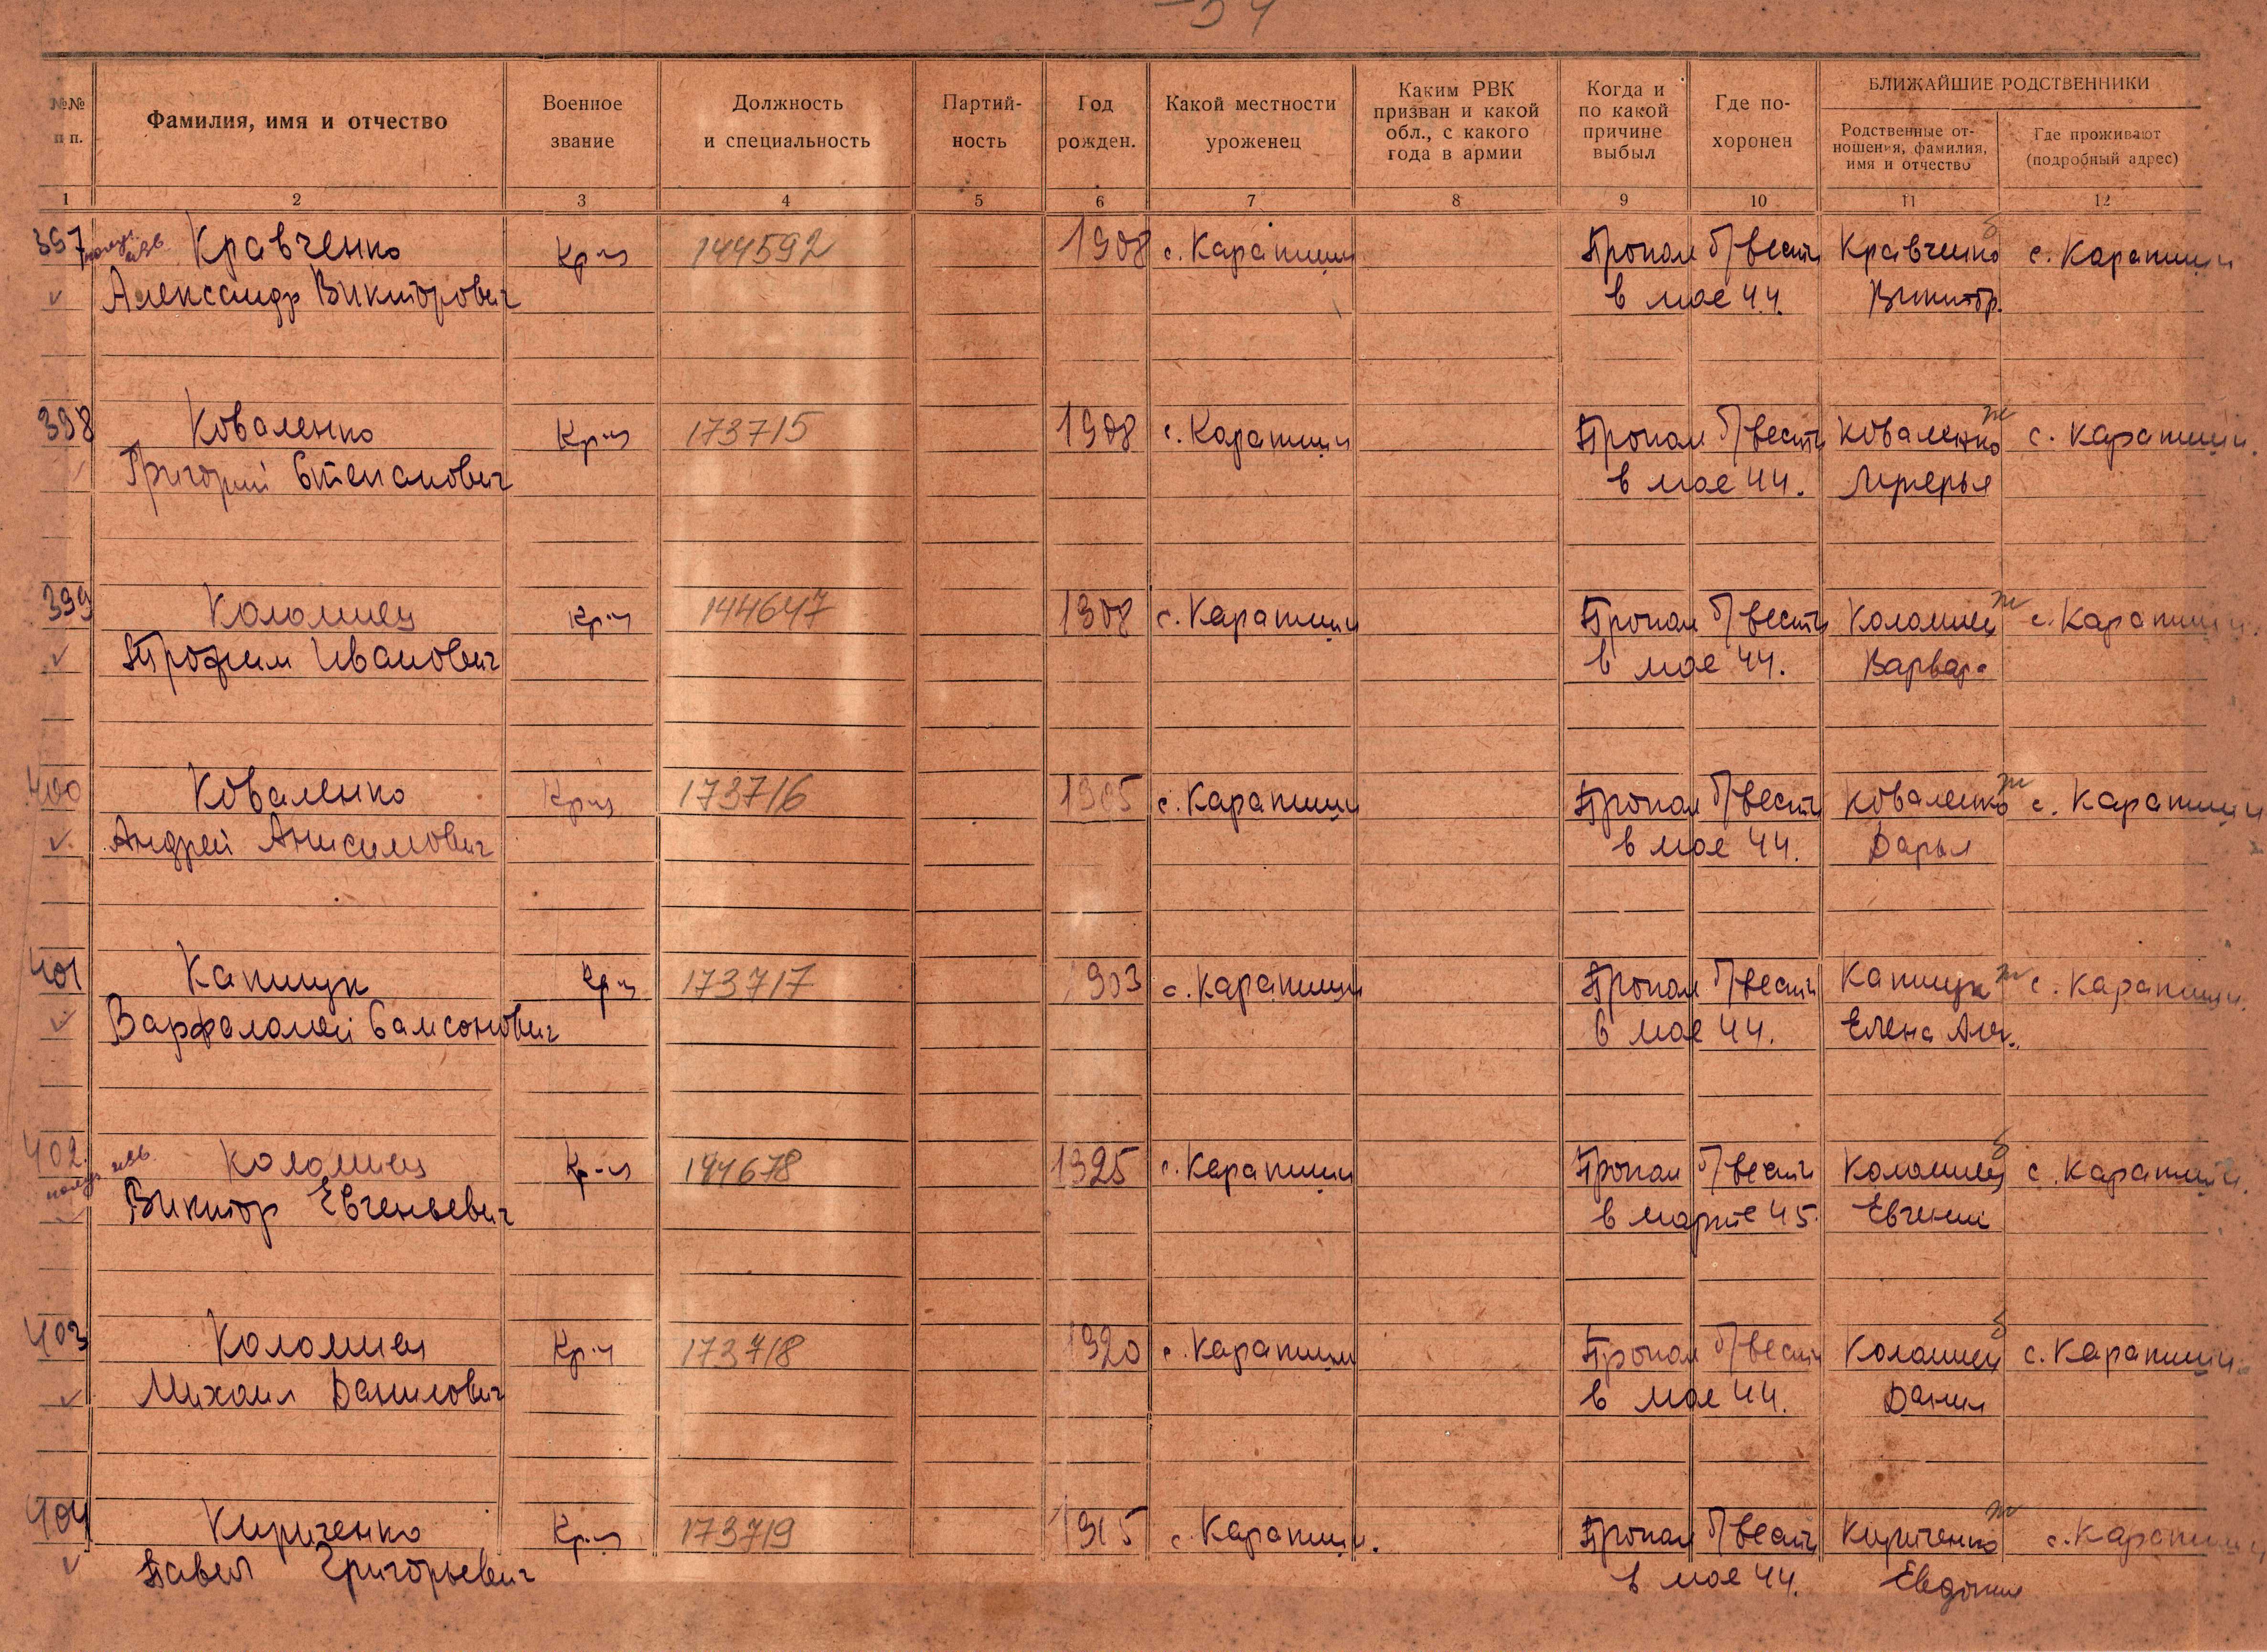 №№ п п.
Фамилия, имя и отчество
Военное звание
Должность и специальность
Партий-ность
Год рожден.
Какой местности уроженец
Каким РВК призван и какой обл., с какого года в армии
Когда и по какой причине выбыл
Где по-хоронен
БЛИЖАЙШИЕ РОДСТВЕННИКИ
Родственные от-ношения, фамилия, имя и отчество
Где проживают (подробный адрес)
1 2 3 4 5 6 7 8 9 10 11 12
397 Кравченко Кр-ц 144592 1908 с. Карапиши Пропал б/вести Кравченко с. Карапиши
Александр Викторович в мае 44. Виктор.
398 Коваленко Кр-ц 173715 1908 с. Карапиши Пропал б/вести Коваленко ж с. Карапиши
Григорий Степанович в мае 44.
399 Коломиец Кр-ц 144647 1908 с. Карапиши Пропал б/вести Коломиец ж с. Карапиши
Трофим Иванович в мае 44. Варвара
400 Коваленко Кр-ц 173716 1905 с. Карапиши Пропал б/вести Коваленко ж с. Карапиши
Андрей Анисимович в мае 44. Дарья
401 Капшук Кр-ц 173717 1903 с. Карапиши Пропал б/вести Капшук ж с. Карапиши
Варфаламей Самсонович в мае 44. Елена
402. Коломиец Кр-ц 144678 1925 с. Карапиши Пропал б/вести Коломиец с. Карапиши
Виктор Евгеньевич в марте 45. Евгений
403 Коломиец Кр-ц 173718 1920 с. Карапиши Пропал б/вести Коломиец с. Карапиши
Михаил Данилович в мае 44. Данил
404 Кириченко Кр-ц 173719 1915 с. Карапиши. Пропал б/вести Кириченко ж с. Карапиши
Павел Григорьевич в мае 44. Евдокия